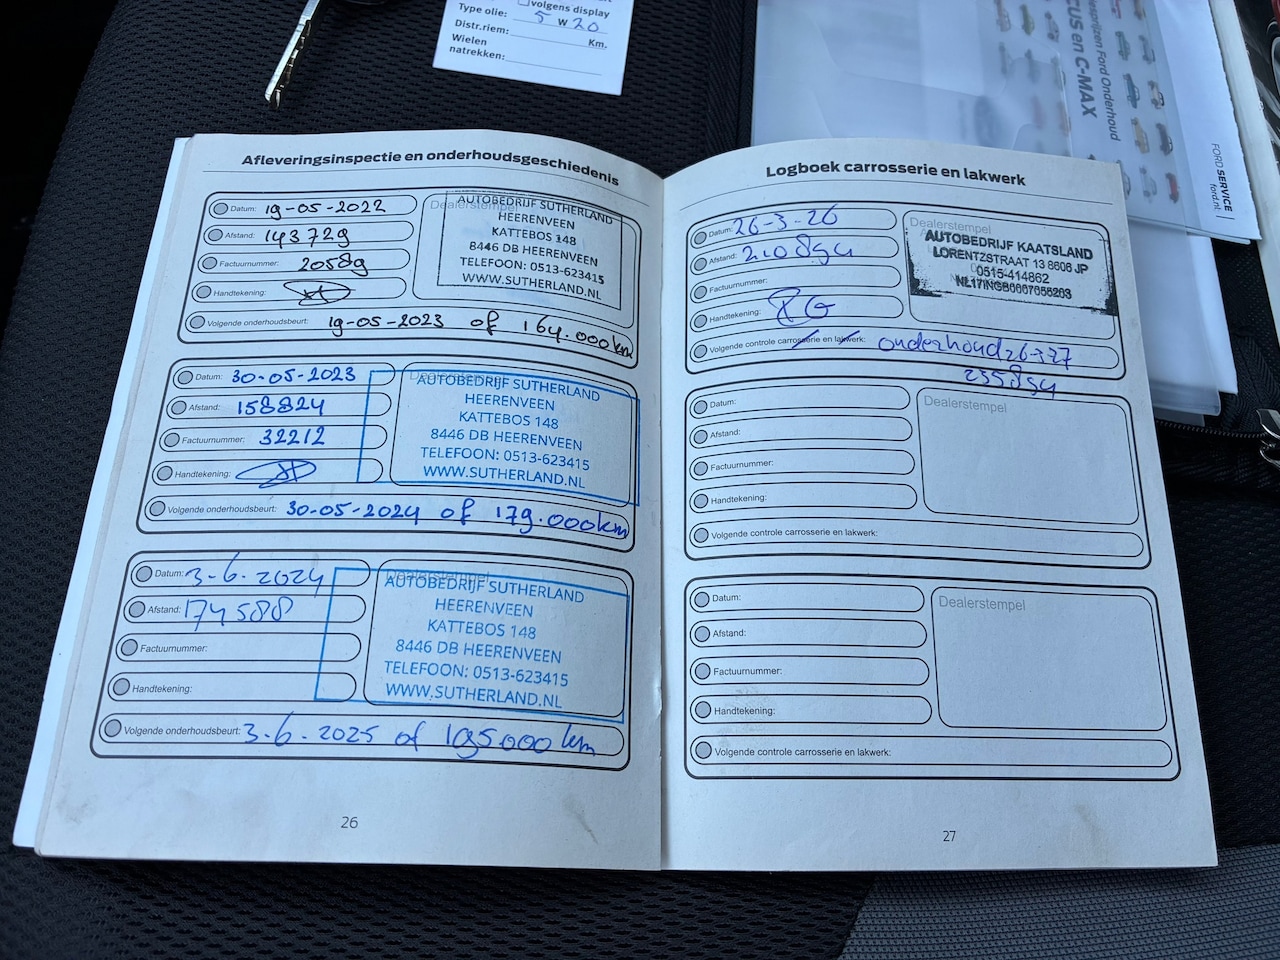 volgens display
Type olie: 5 W 20
Distr.riem: Km.
Wielen
natrekken:
CUS en C-MAX
Ford Onderhoud
FORD SERVICE
ford.nl
Afleveringsinspectie en onderhoudsgeschiedenis
Datum: 19-05-2022
Afstand: 143729
Factuurnummer: 20589
Handtekening:
Volgende onderhoudsbeurt: 19-05-2023 of 164.000km
Dealerstempel
AUTOBEDRIJF SUTHERLAND
HEERENVEEN
KATTEBOS 148
8446 DB HEERENVEEN
TELEFOON: 0513-623415
WWW.SUTHERLAND.NL
Datum: 30-05-2023
Afstand: 158824
Factuurnummer: 32212
Handtekening:
Volgende onderhoudsbeurt: 30-05-2024 of 179.000km
Dealerstempel
AUTOBEDRIJF SUTHERLAND
HEERENVEEN
KATTEBOS 148
8446 DB HEERENVEEN
TELEFOON: 0513-623415
WWW.SUTHERLAND.NL
Datum: 3-6-2024
Afstand: 174588
Factuurnummer:
Handtekening:
Volgende onderhoudsbeurt: 3-6-2025 of 195000 km
Dealerstempel
AUTOBEDRIJF SUTHERLAND
HEERENVEEN
KATTEBOS 148
8446 DB HEERENVEEN
TELEFOON: 0513-623415
WWW.SUTHERLAND.NL
26
Logboek carrosserie en lakwerk
Datum: 26-3-26
Afstand: 210894
Factuurnummer:
Handtekening: RG
Volgende controle carrosserie en lakwerk: onderhoud 26-3-27
235894
Dealerstempel
AUTOBEDRIJF KAATSLAND
LORENTZSTRAAT 13 8606 JP
0515-414862
Datum:
Afstand:
Factuurnummer:
Handtekening:
Volgende controle carrosserie en lakwerk:
Dealerstempel
Datum:
Afstand:
Factuurnummer:
Handtekening:
Volgende controle carrosserie en lakwerk:
Dealerstempel
27